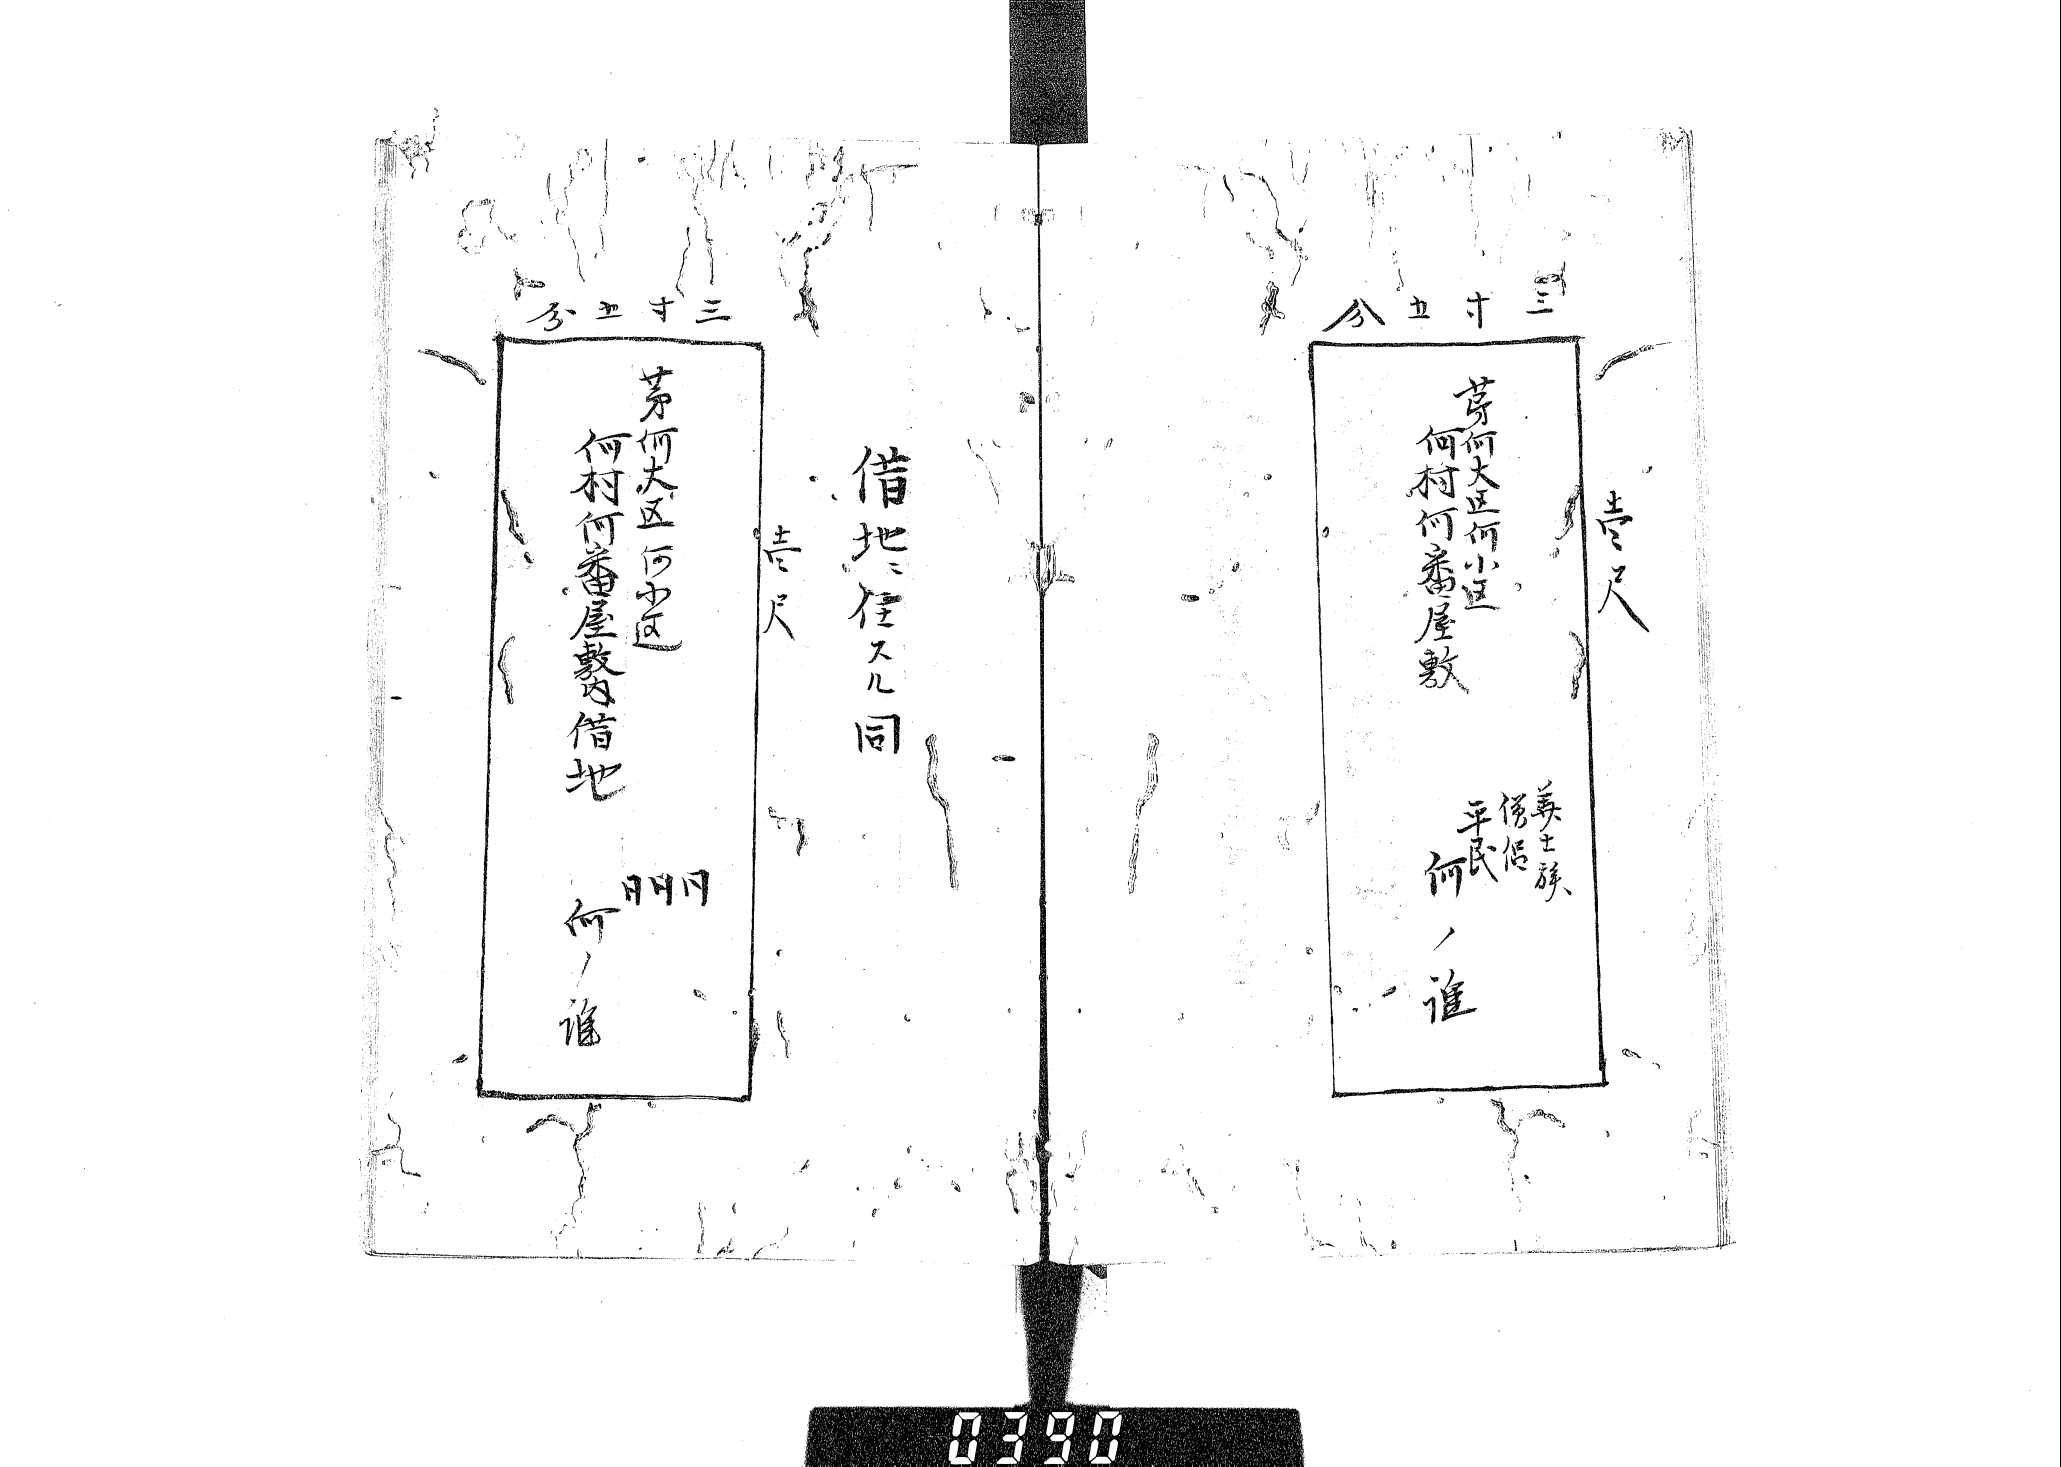 三寸五分
壱尺
第何大区何小区
何村何番屋敷
華士族
僧侶
平民
何ノ誰
借地ニ住スル同
三寸五分
壱尺
第何大区何小区
何村何番屋敷内借地
同同同
何ノ誰
0390